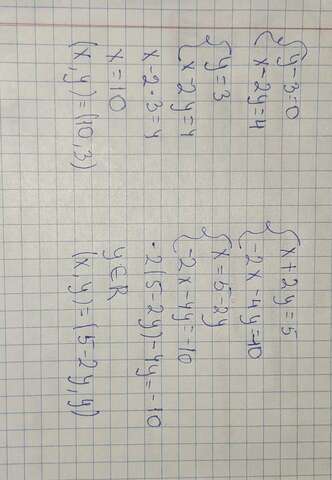 { y-3=0
x-2y=4
{ y=3
x-2y=4
x-2·3=4
x=10
(x,y)=(10,3)
{ x+2y=5
-2x-4y=-10
{ x=5-2y
-2x-4y=-10
-2(5-2y)-4y=-10
y∈R
(x,y)=(5-2y,y)